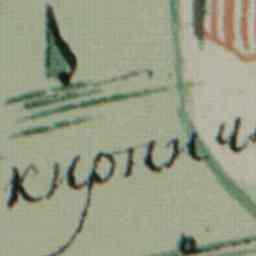 кирпич